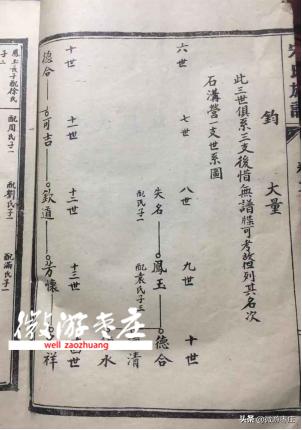 钧 大量
此三世俱系三支後惜無譜牒可考故但列其名次
石溝營一支世系圖
六世 七世 八世 九世 十世
失名 鳳玉 德合
配袁氏子三
清
水
十世 十一世 十二世 十三世 十四世
德合 可吉 欽道 芳懷 祥
配徐氏
配周氏子一
配劉氏子一
配滿氏子一
微游枣庄
well zaozhuang
头条 @微游枣庄